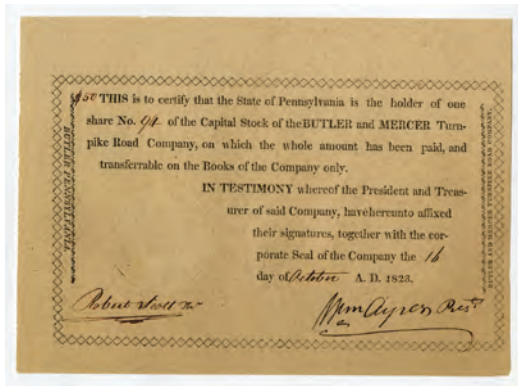 $50 THIS is to certify that the State of Pennsylvania is the holder of one
share No. 94 of the Capital Stock of the BUTLER and MERCER Turn-
pike Road Company, on which the whole amount has been paid, and
transferrable on the Books of the Company only.
IN TESTIMONY whereof the President and Treas-
urer of said Company, have hereunto affixed
their signatures, together with the cor-
porate Seal of the Company the 16
day of October A. D. 1823.
Robert Scott Tr
Wm Ayres Pres.t
BUTLER PENNSYLVANIA.
BUTLER AND MERCER TURNPIKE ROAD COMPANY.